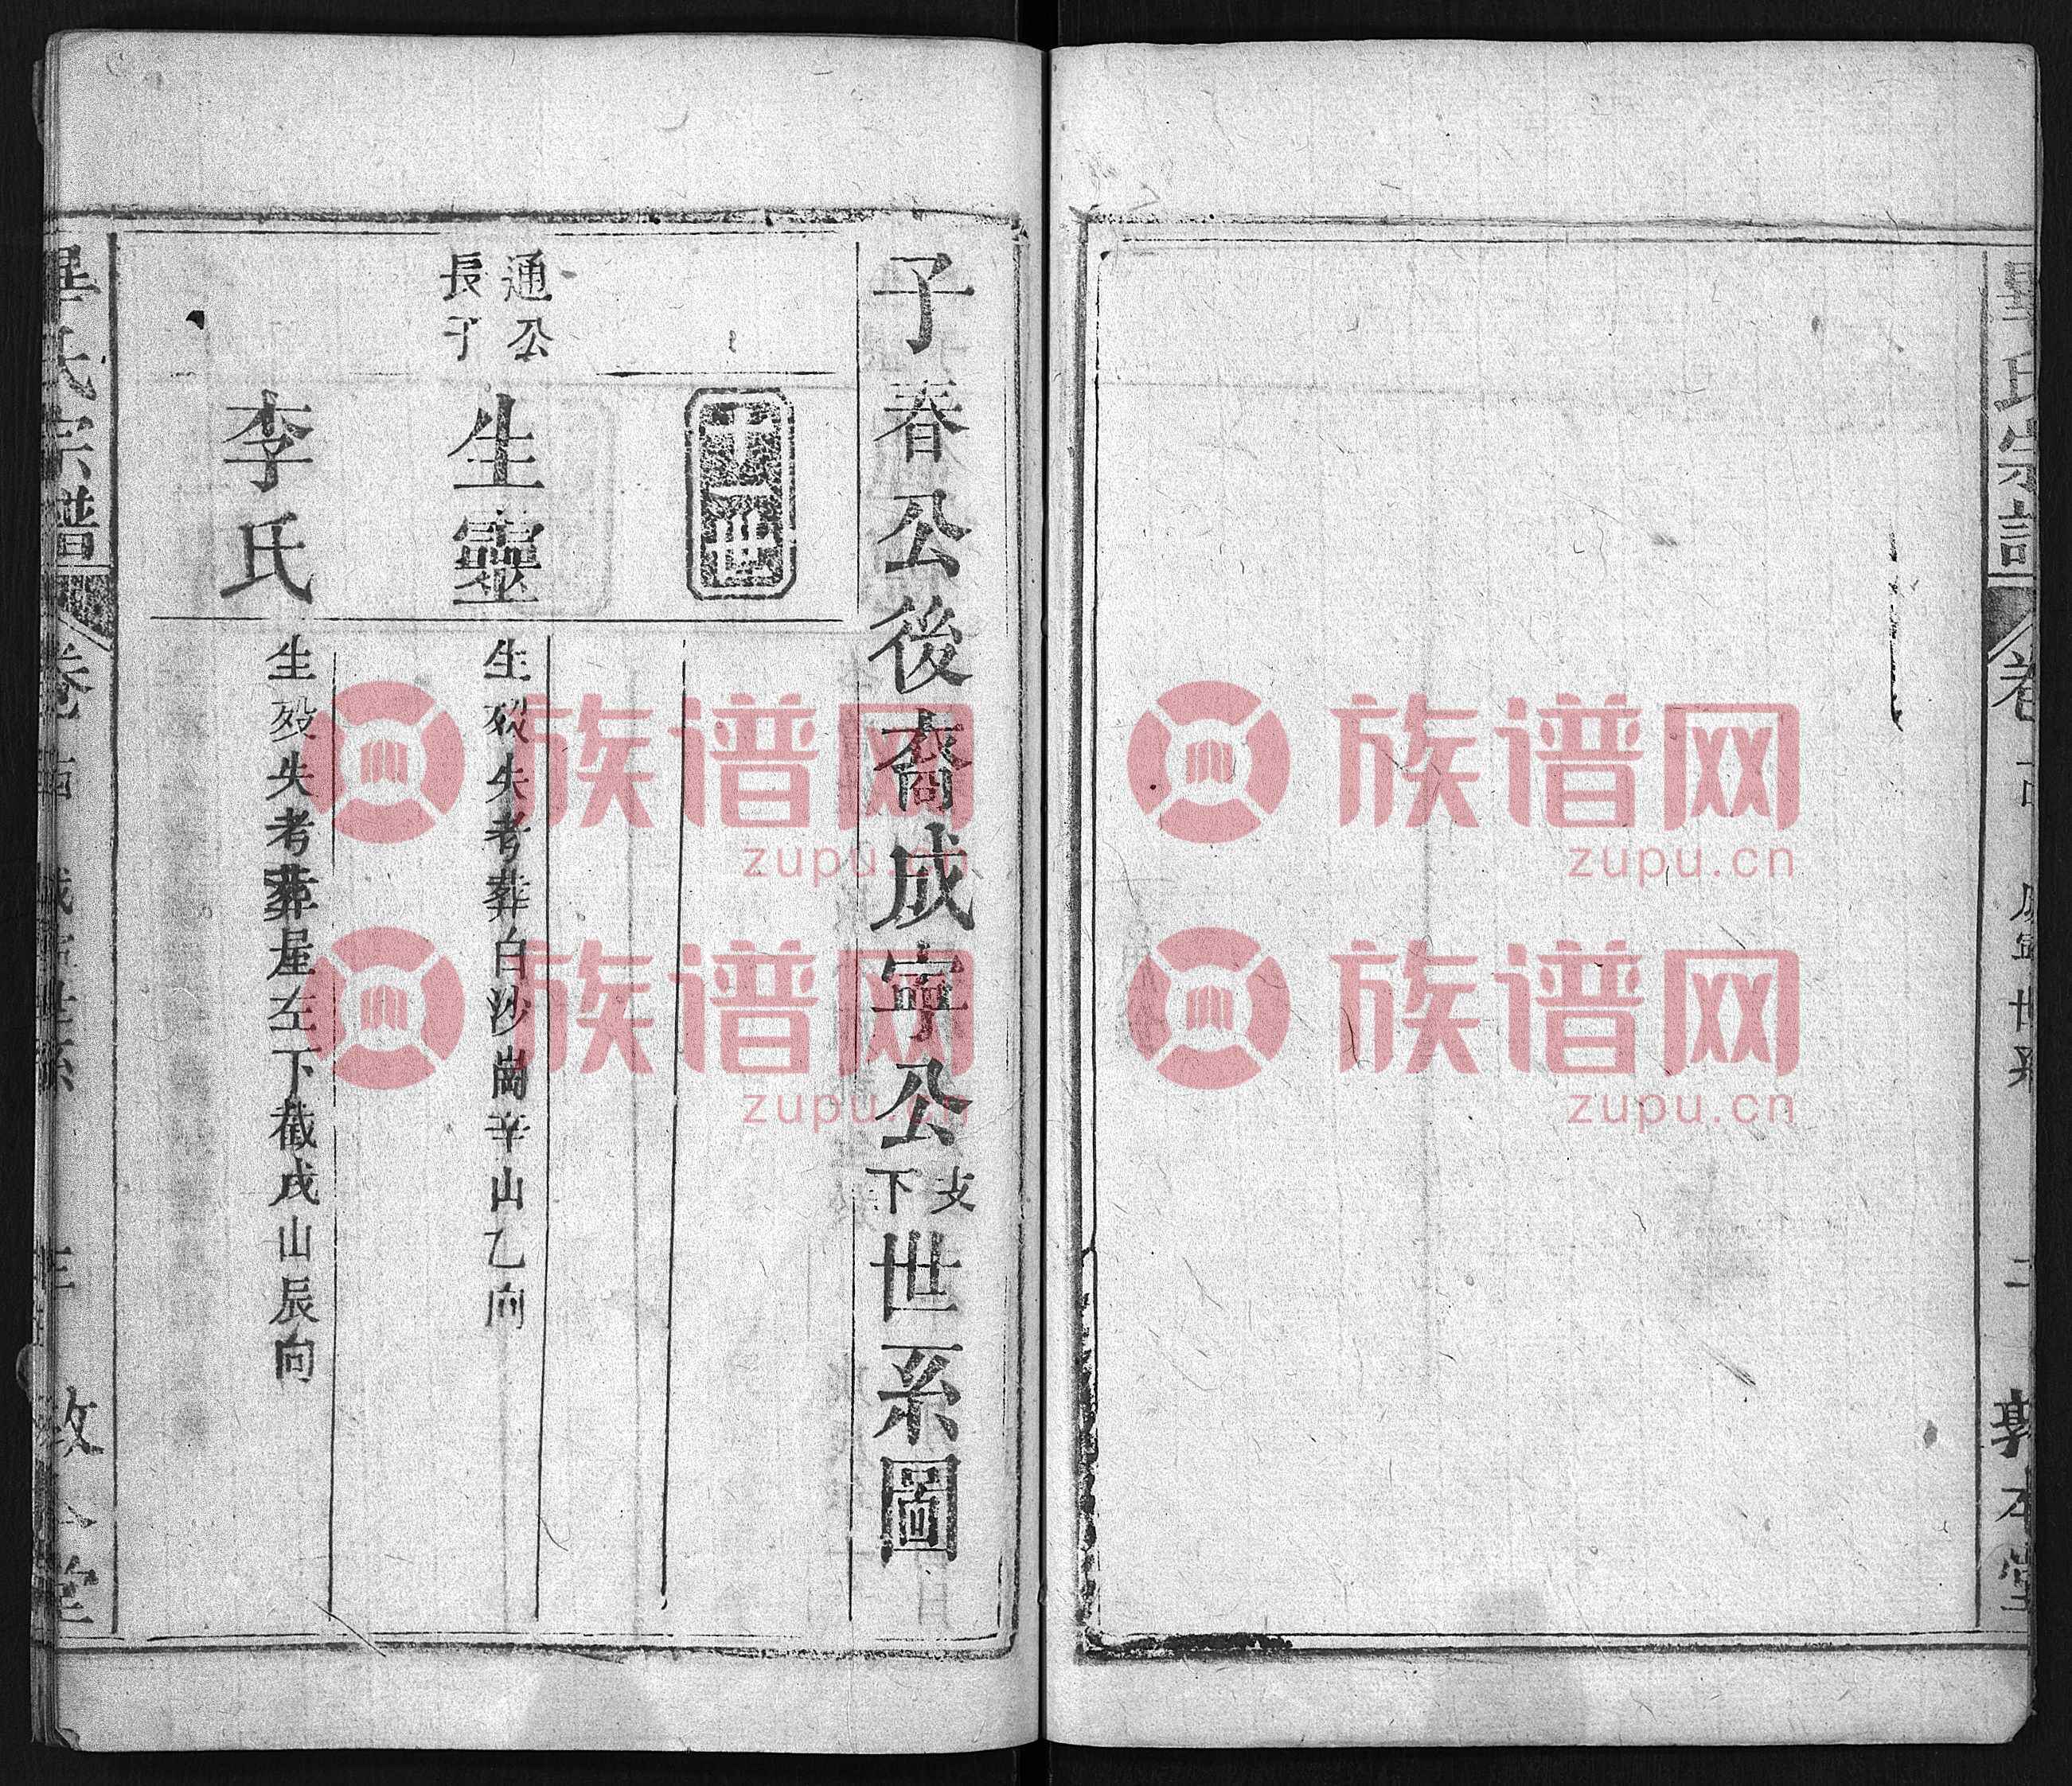 氏宗譜
卷
成寧世系
二
敦本堂
子春公後裔成寧公支下世系圖
十一世
通公
長子
生靈
生歿失考葬白沙崗辛山乙向
李氏
生歿失考葬屋左下截戌山辰向
氏宗譜
卷
成寧世系
三
堂
族谱网
zupu.cn
族谱网
zupu.cn
族谱网
zupu.cn
族谱网
zupu.cn